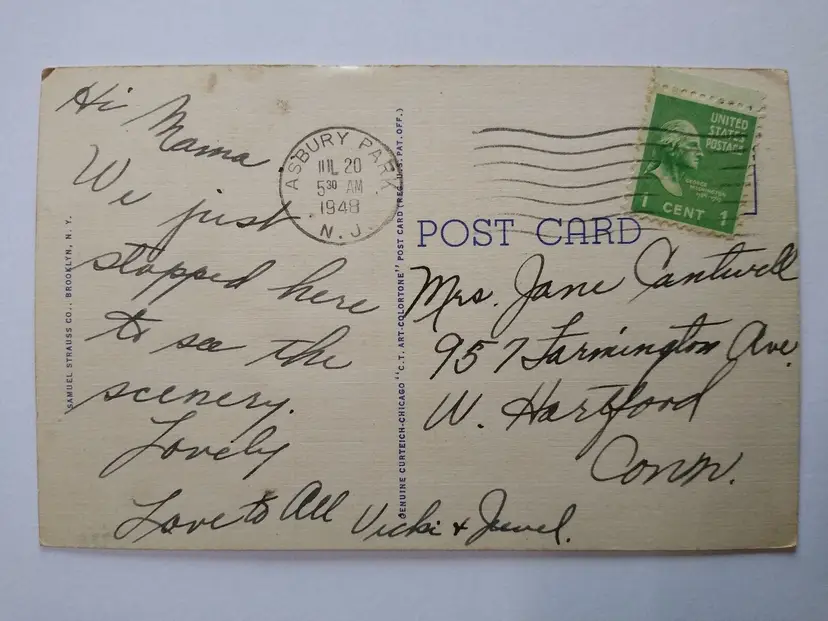 Hi Mama
We just
stopped here
to see the
scenery.
Lovely
Love to All Vicki + Jewel.
SAMUEL STRAUSS CO., BROOKLYN, N. Y.
ASBURY PARK
JUL 20
5 30 AM
1948
N. J.
GENUINE CURTEICH-CHICAGO "C. T. ART-COLORTONE" POST CARD (REG. U. S. PAT. OFF.)
UNITED
STATES
POSTAGE
GEORGE
WASHINGTON
1 CENT 1
POST CARD
Mrs. Jane Cantwell
957 Farmington Ave.
W. Hartford
Conn.